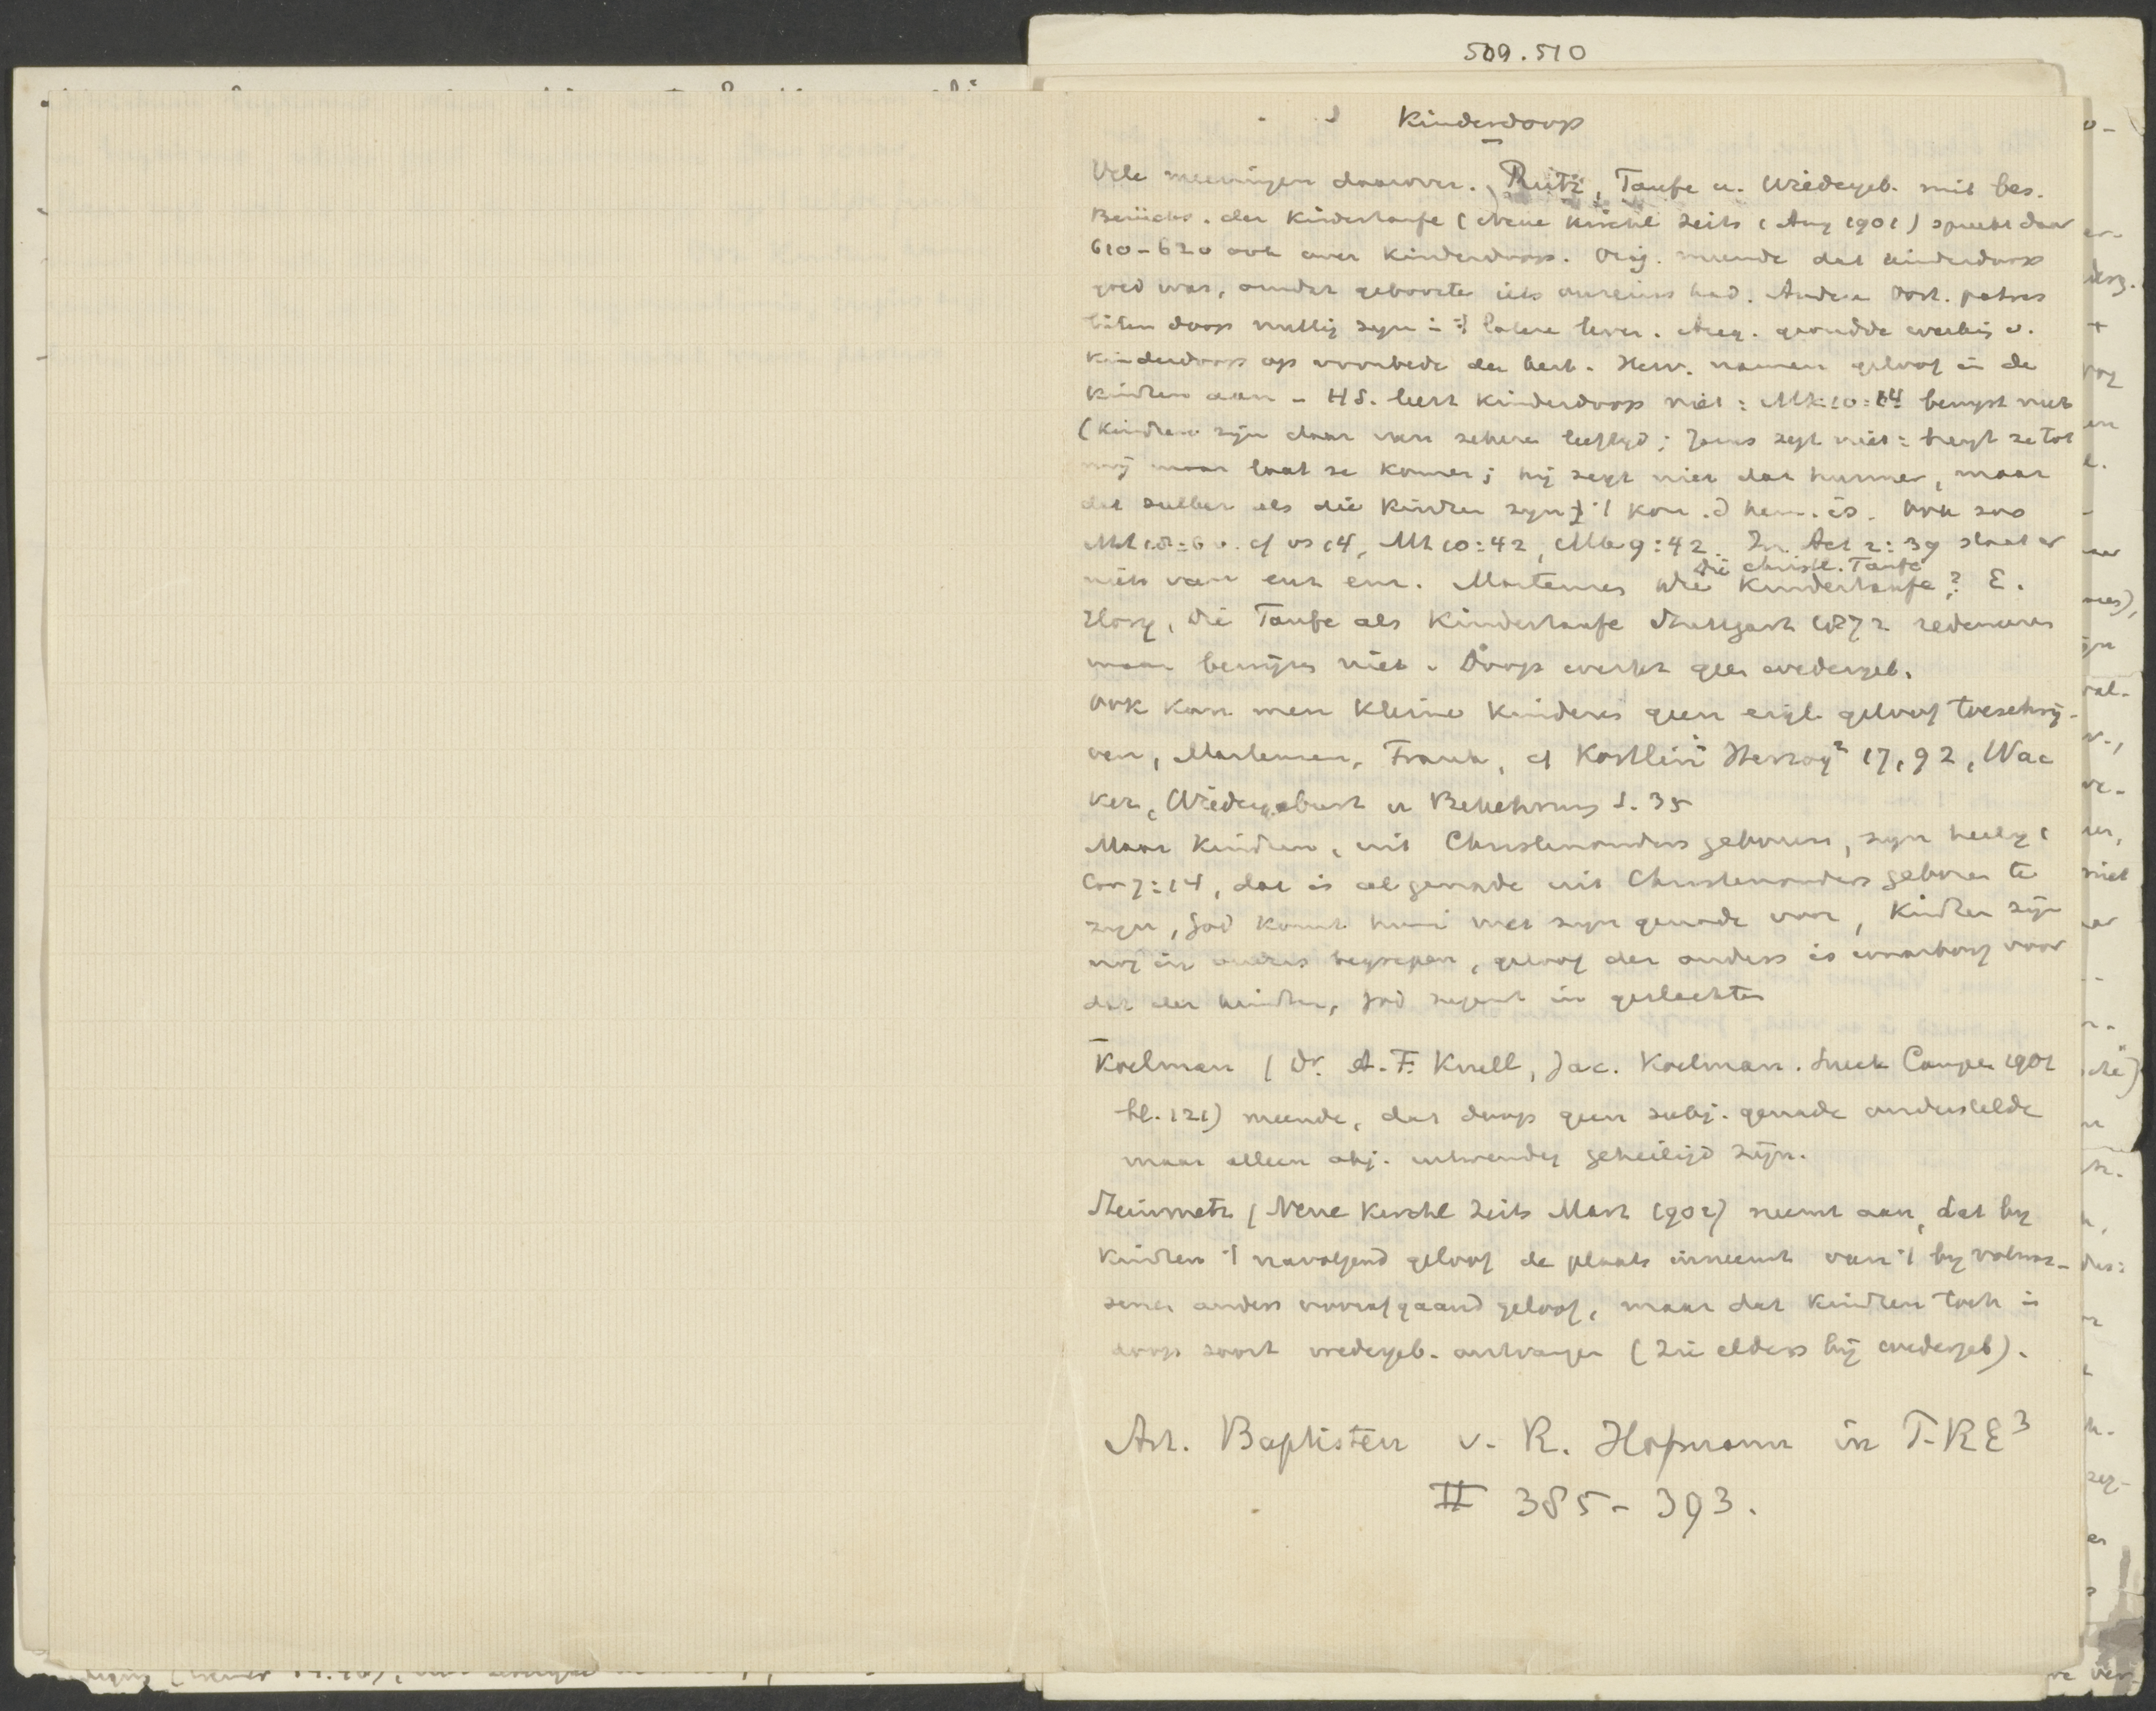 509.510
Kinderdoop
Vele meeningen daarover. Rutz, Taufe u. Wiedergeb. mit bes.
Berücks. der Kindertaufe (Neue Kirchl Zeits (Aug 1901) spreekt daar
610-620 ook over Kinderdoop. Orig. meende dat kinderdoop
goed was, omdat geboorte iets onreins had. Andere oost. patres
lieten doop nuttig zijn in 't latere leven. Aug. grondde werking v.
Kinderdoop op voorbede der kerk. Herv. namen geloof in de
Kindren aan - HS. leert Kinderdoop niet: Mk 10:14 bewijst niet
(Kindren zijn daar van zekere leeftijd; Jezus zegt niet: brengt ze tot
mij maar laat ze komen; hij zegt niet dat hunner, maar
dat zulker als die Kindren zijn 't kon. d hem. is. Ook zoo
Mt 18:6 v. cf vs 14, Mt 10:42, Mk 9:42. In Act 2:39 staat er
niets van enz enz. Martensen Die christl. Taufe
Die Kindertaufe? E.
Hory, Die Taufe als Kindertaufe Stuttgart 1872 redeneren
maar bewijzen niet. Doop werkt geen wedergeb.
Ook kan men kleine kinderen geen eigl. geloof toeschrij-
ven, Martensen, Frank, cf Köstlin in Herzog² 17,92, Wac
ker, Wiedergeburt u Bekehrung S. 35
Maar Kindren, uit Christenouders geboren, zijn heilig 1
Cor 7:14, dat is al genade uit Christenouders geboren te
zijn, God komt hun met zijn genade voor, Kindren zijn
nog in ouders begrepen, geloof der ouders is waarborg voor
dat der kindren, God zegent in geslachten
Koelman (Dr. A. F. Krull, Jac. Koelman. Sneek Campen 1901
bl. 121) meende, dat doop geen subj. genade onderstelde
maar alleen obj. uitwendig geheiligd zijn.
Steinmetz (Neue Kirchl Zeits Mart 1902) neemt aan, dat bij
Kindren 't navolgend geloof de plaats inneemt van 't bij volwas-
senen anders voorafgaand geloof, maar dat Kindren toch in
doop soort wedergeb. ontvangen (zie elders bij wedergeb).
Art. Baptisten v. R. Hofmann in PRE³
II 385-393.